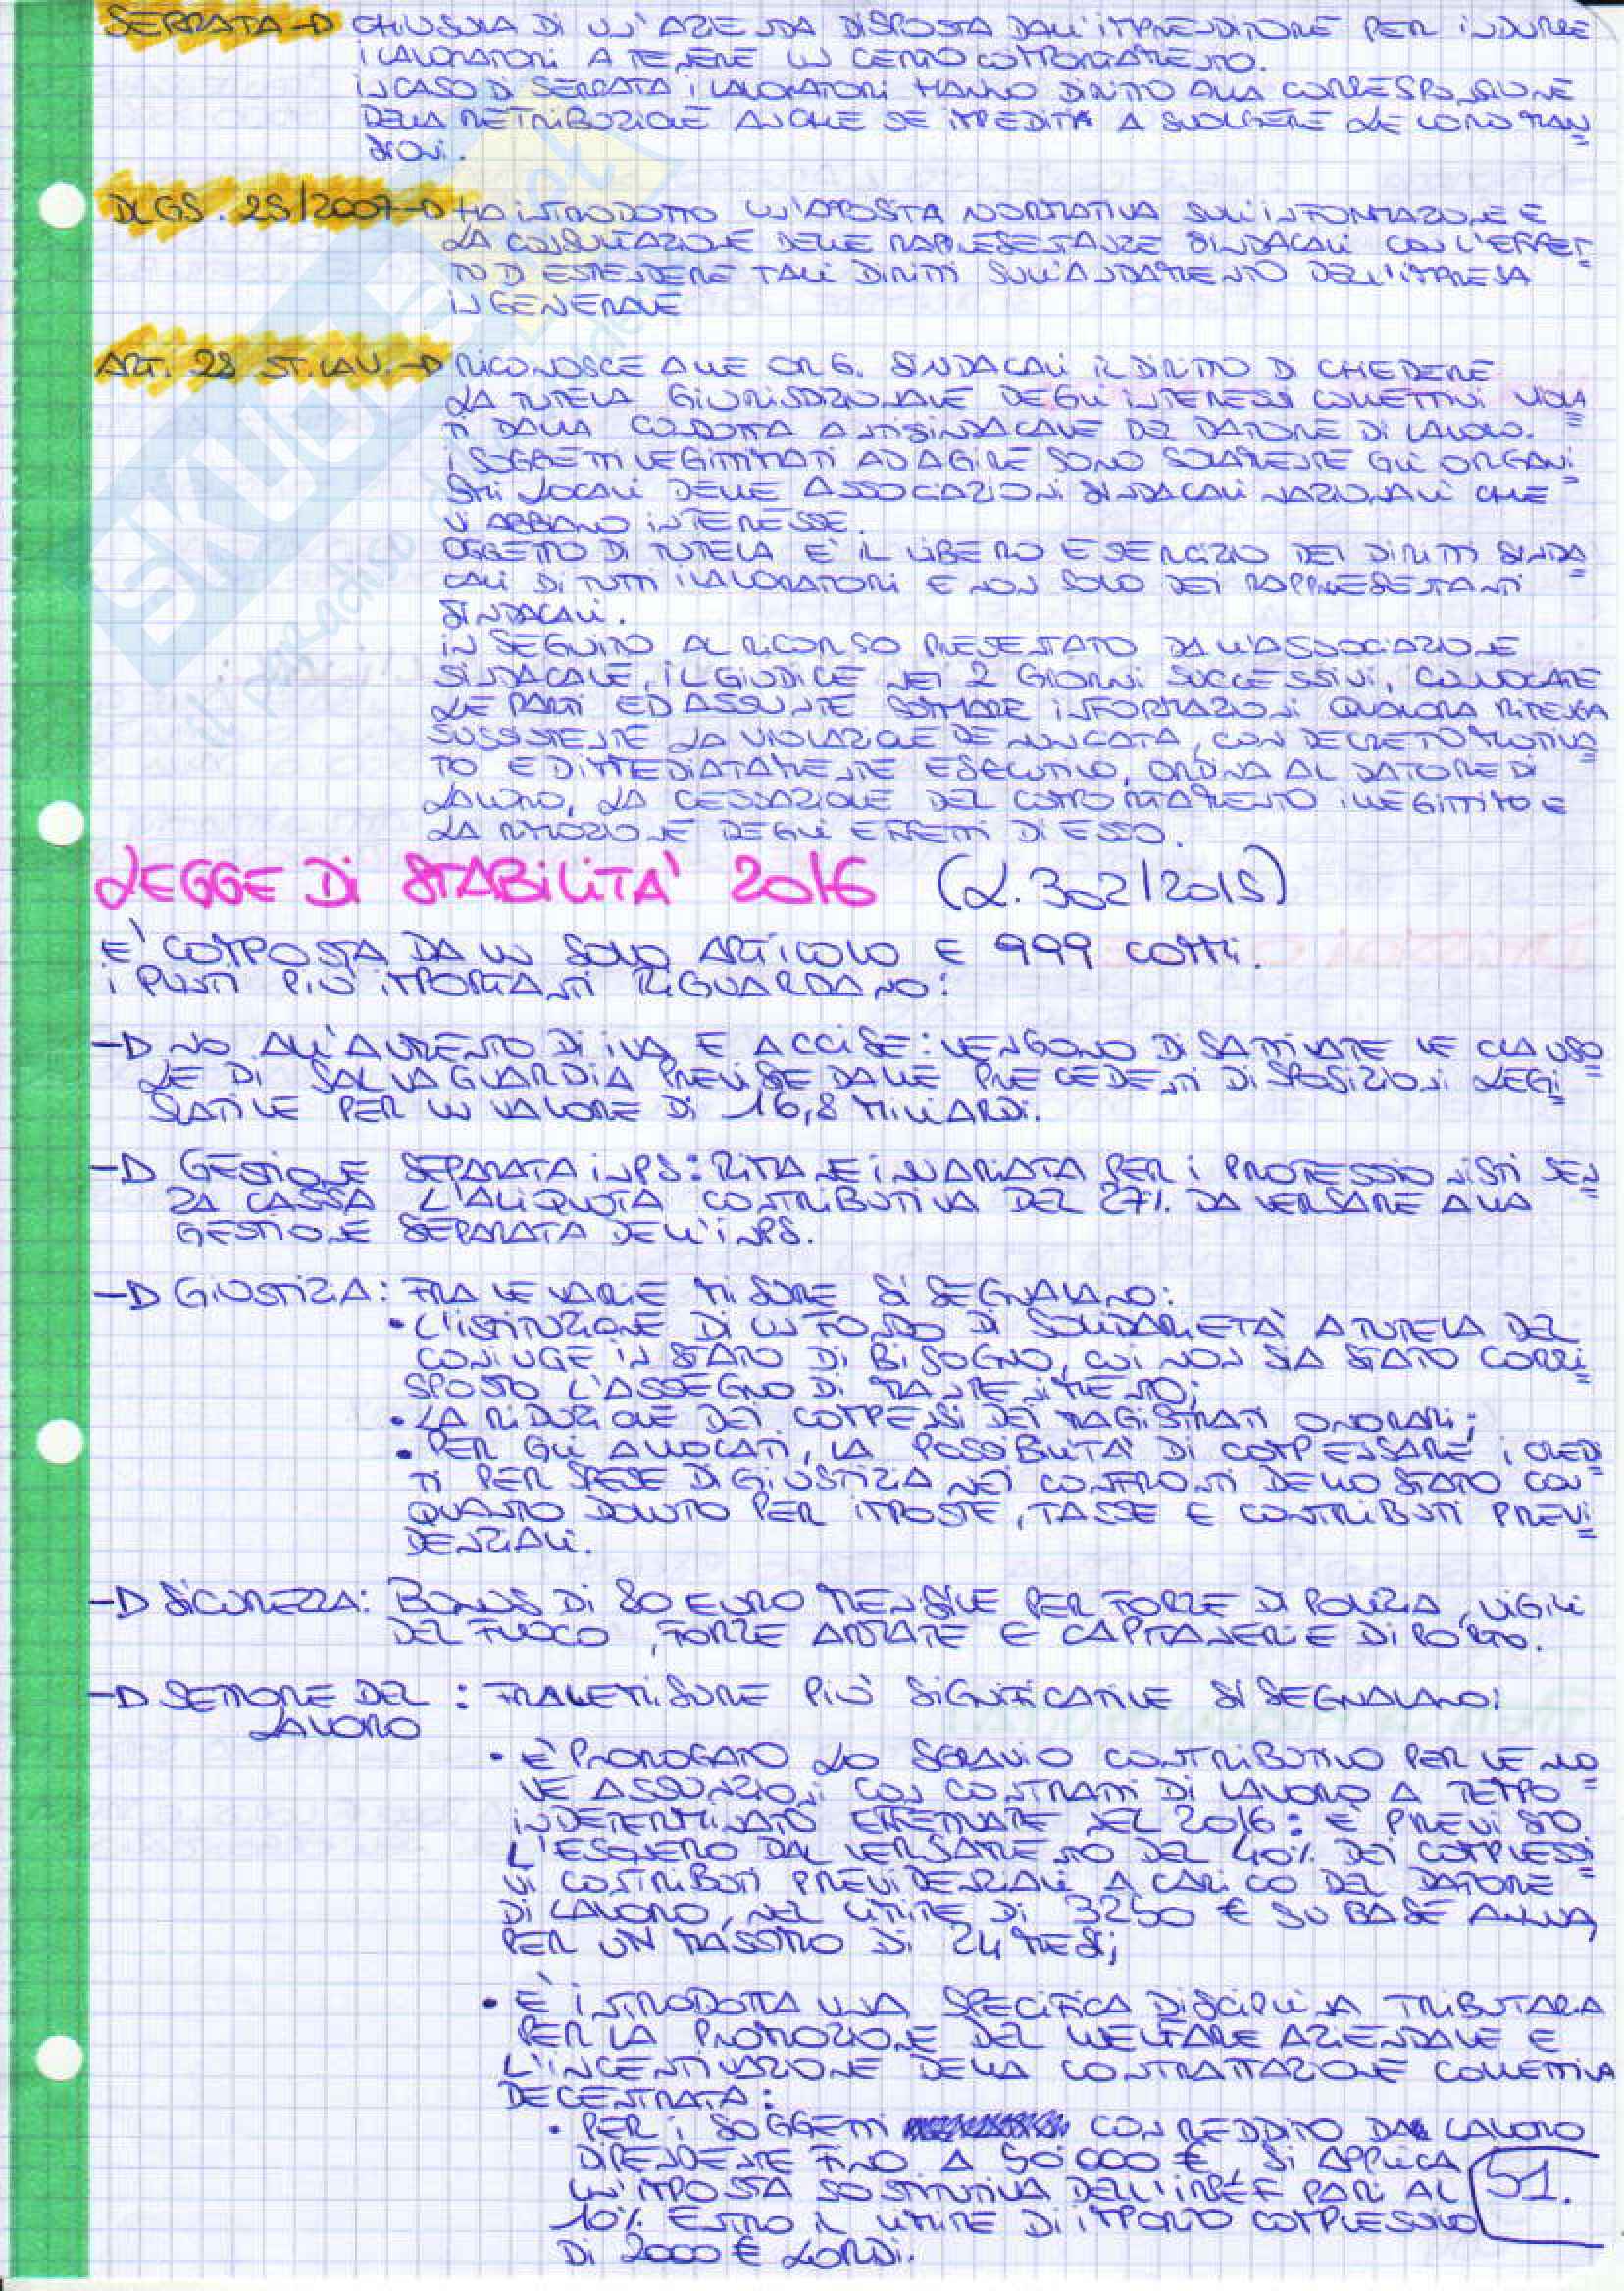 SERRATA → CHIUSURA DI UN'AZIENDA DISPOSTA DALL'IMPRENDITORE PER INDURRE
I LAVORATORI A TENERE UN CERTO COMPORTAMENTO.
IN CASO DI SERRATA I LAVORATORI HANNO DIRITTO ALLA CORRESPONSIONE
DELLA RETRIBUZIONE ANCHE SE IMPEDITI A SVOLGERE LE LORO MAN
SIONI.
D.LGS. 25/2007 → HA INTRODOTTO UN'APPOSITA NORMATIVA SULL'INFORMAZIONE E
LA CONSULTAZIONE DELLE RAPPRESENTANZE SINDACALI CON L'EFFET
TO DI ESTENDERE TALI DIRITTI SULL'ANDAMENTO DELL'IMPRESA
IN GENERALE
ART. 28 ST.LAV. → RICONOSCE ALLE ORG. SINDACALI IL DIRITTO DI CHIEDERE
LA TUTELA GIURISDIZIONALE DEGLI INTERESSI COLLETTIVI VIOLA
TI DALLA CONDOTTA ANTISINDACALE DEL DATORE DI LAVORO.
I SOGGETTI LEGITTIMATI AD AGIRE SONO SOLAMENTE GLI ORGANI
SMI LOCALI DELLE ASSOCIAZIONI SINDACALI NAZIONALI CHE
VI ABBIANO INTERESSE.
OGGETTO DI TUTELA E' IL LIBERO ESERCIZIO DEI DIRITTI SINDA
CALI DI TUTTI I LAVORATORI E NON SOLO DEI RAPPRESENTANTI
SINDACALI.
IN SEGUITO AL RICORSO PRESENTATO DALL'ASSOCIAZIONE
SINDACALE, IL GIUDICE NEI 2 GIORNI SUCCESSIVI, CONVOCATE
LE PARTI ED ASSUNTE SOMMARIE INFORMAZIONI QUALORA RITENGA
SUSSISTENTE LA VIOLAZIONE DENUNCIATA, CON DECRETO MOTIVA
TO ED IMMEDIATAMENTE ESECUTIVO, ORDINA AL DATORE DI
LAVORO, LA CESSAZIONE DEL COMPORTAMENTO ILLEGITTIMO E
LA RIMOZIONE DEGLI EFFETTI DI ESSO.
LEGGE DI STABILITA' 2016 (L. 302/2015)
E' COMPOSTA DA UN SOLO ARTICOLO E 999 COMMI.
I PUNTI PIU' IMPORTANTI RIGUARDANO:
→ NO ALL'AUMENTO DI IVA E ACCISE: VENGONO DISATTIVATE LE CLAUSO
LE DI SALVAGUARDIA PREVISTE DALLE PRECEDENTI DISPOSIZIONI LEGI
SLATIVE PER UN VALORE DI 16,8 MILIARDI.
→ GESTIONE SEPARATA INPS: RIMANE INVARIATA PER I PROFESSIONISTI SEN
ZA CASSA L'ALIQUOTA CONTRIBUTIVA DEL 27% DA VERSARE ALLA
GESTIONE SEPARATA DELL'INPS.
→ GIUSTIZIA: FRA LE VARIE MISURE SI SEGNALANO:
• L'ISTITUZIONE DI UN FONDO DI SOLIDARIETÀ A TUTELA DEL
CONIUGE IN STATO DI BISOGNO, CUI NON SIA STATO CORRI
SPOSTO L'ASSEGNO DI MANTENIMENTO;
• LA RIDUZIONE DEI COMPENSI DEI MAGISTRATI ONORARI;
• PER GLI AVVOCATI, LA POSSIBILITA' DI COMPENSARE I CREDI
TI PER SPESE DI GIUSTIZIA NEI CONFRONTI DELLO STATO CON
QUANTO DOVUTO PER IMPOSTE, TASSE E CONTRIBUTI PREVI
DENZIALI.
→ SICUREZZA: BONUS DI 80 EURO MENSILE PER FORZE DI POLIZIA, VIGILI
DEL FUOCO, FORZE ARMATE E CAPITANERIE DI PORTO.
→ SETTORE DEL : FRA LE MISURE PIU' SIGNIFICATIVE SI SEGNALANO:
LAVORO
• E' PROROGATO LO SGRAVIO CONTRIBUTIVO PER LE NUO
VE ASSUNZIONI CON CONTRATTI DI LAVORO A TEMPO
INDETERMINATO EFFETTUATE NEL 2016: E' PREVISTO
L'ESONERO DAL VERSAMENTO DEL 40% DEI COMPLESSI
VI CONTRIBUTI PREVIDENZIALI A CARICO DEL DATORE
DI LAVORO, NEL LIMITE DI 3250 € SU BASE ANNUA,
PER UN MASSIMO DI 24 MESI;
• E' INTRODOTTA UNA SPECIFICA DISCIPLINA TRIBUTARIA
PER LA PROMOZIONE DEL WELFARE AZIENDALE E
L'INCENTIVAZIONE DELLA CONTRATTAZIONE COLLETTIVA
DECENTRATA:
• PER I SOGGETTI CON REDDITO DA LAVORO
DIPENDENTE FINO A 50000 €, SI APPLICA
UN'IMPOSTA SOSTITUTIVA DELL'IRPEF PARI AL
10% ENTRO IL LIMITE DI IMPORTO COMPLESSIVO
DI 2000 € LORDI.
51.